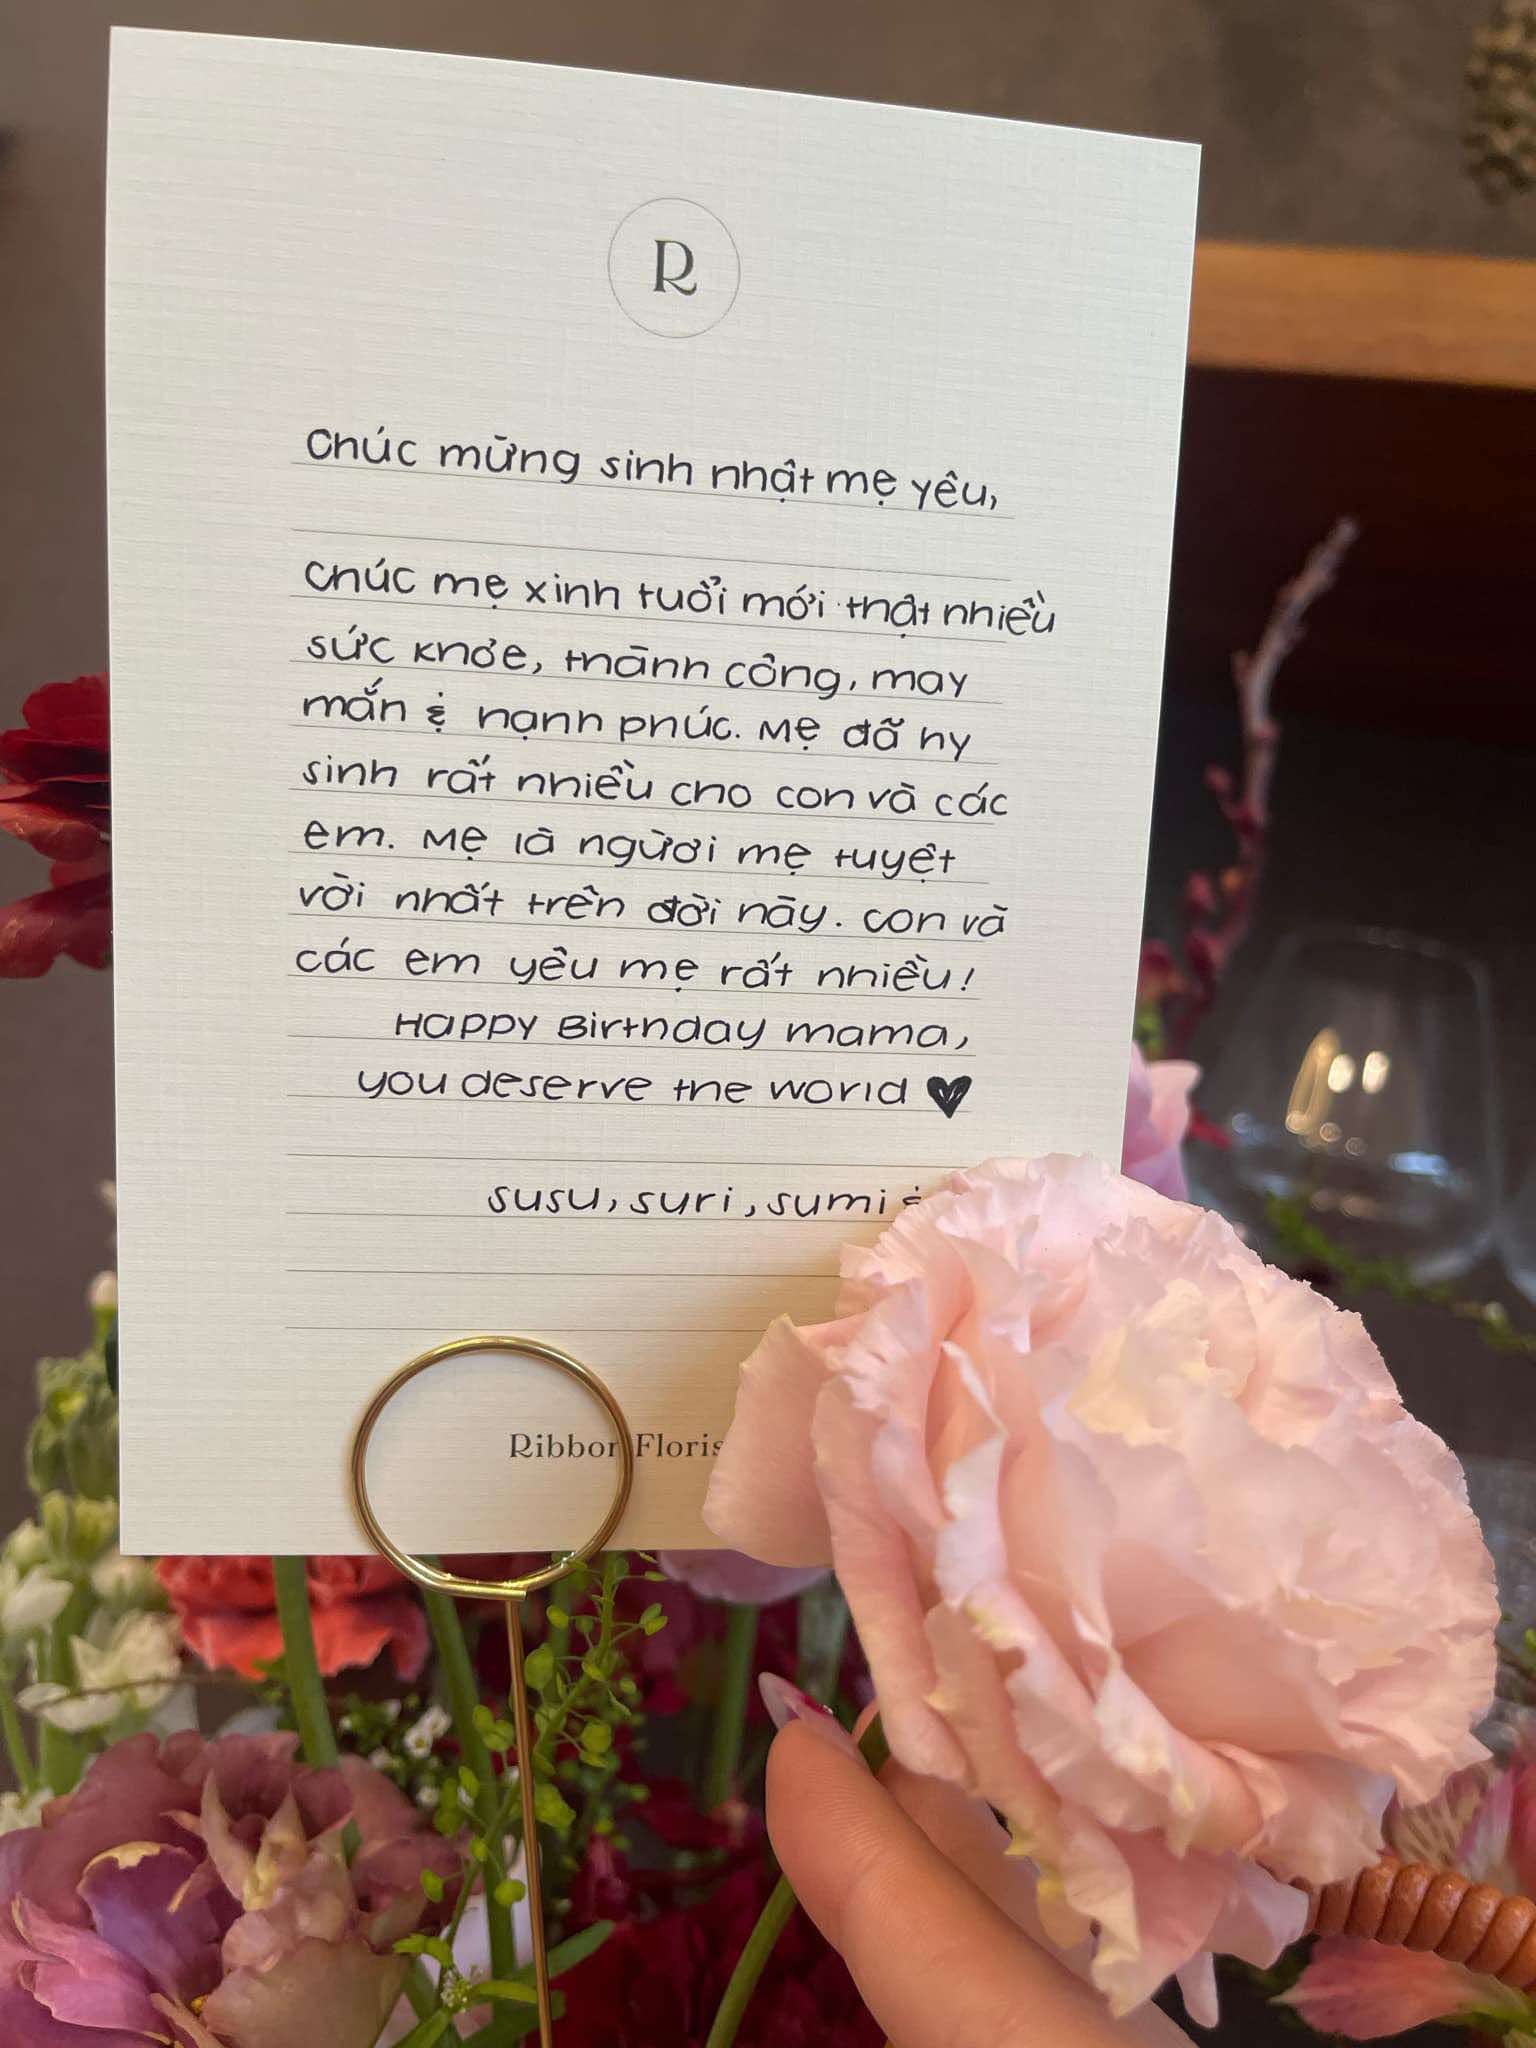 R
Chúc mừng sinh nhật mẹ yêu,
Chúc mẹ xinh tuổi mới thật nhiều
sức khỏe, thành công, may
mắn & hạnh phúc. Mẹ đã hy
sinh rất nhiều cho con và các
em. Mẹ là người mẹ tuyệt
vời nhất trên đời này. Con và
các em yêu mẹ rất nhiều!
Happy Birthday mama,
you deserve the world ♥
susu, suri, sumi &
Ribbon Floris